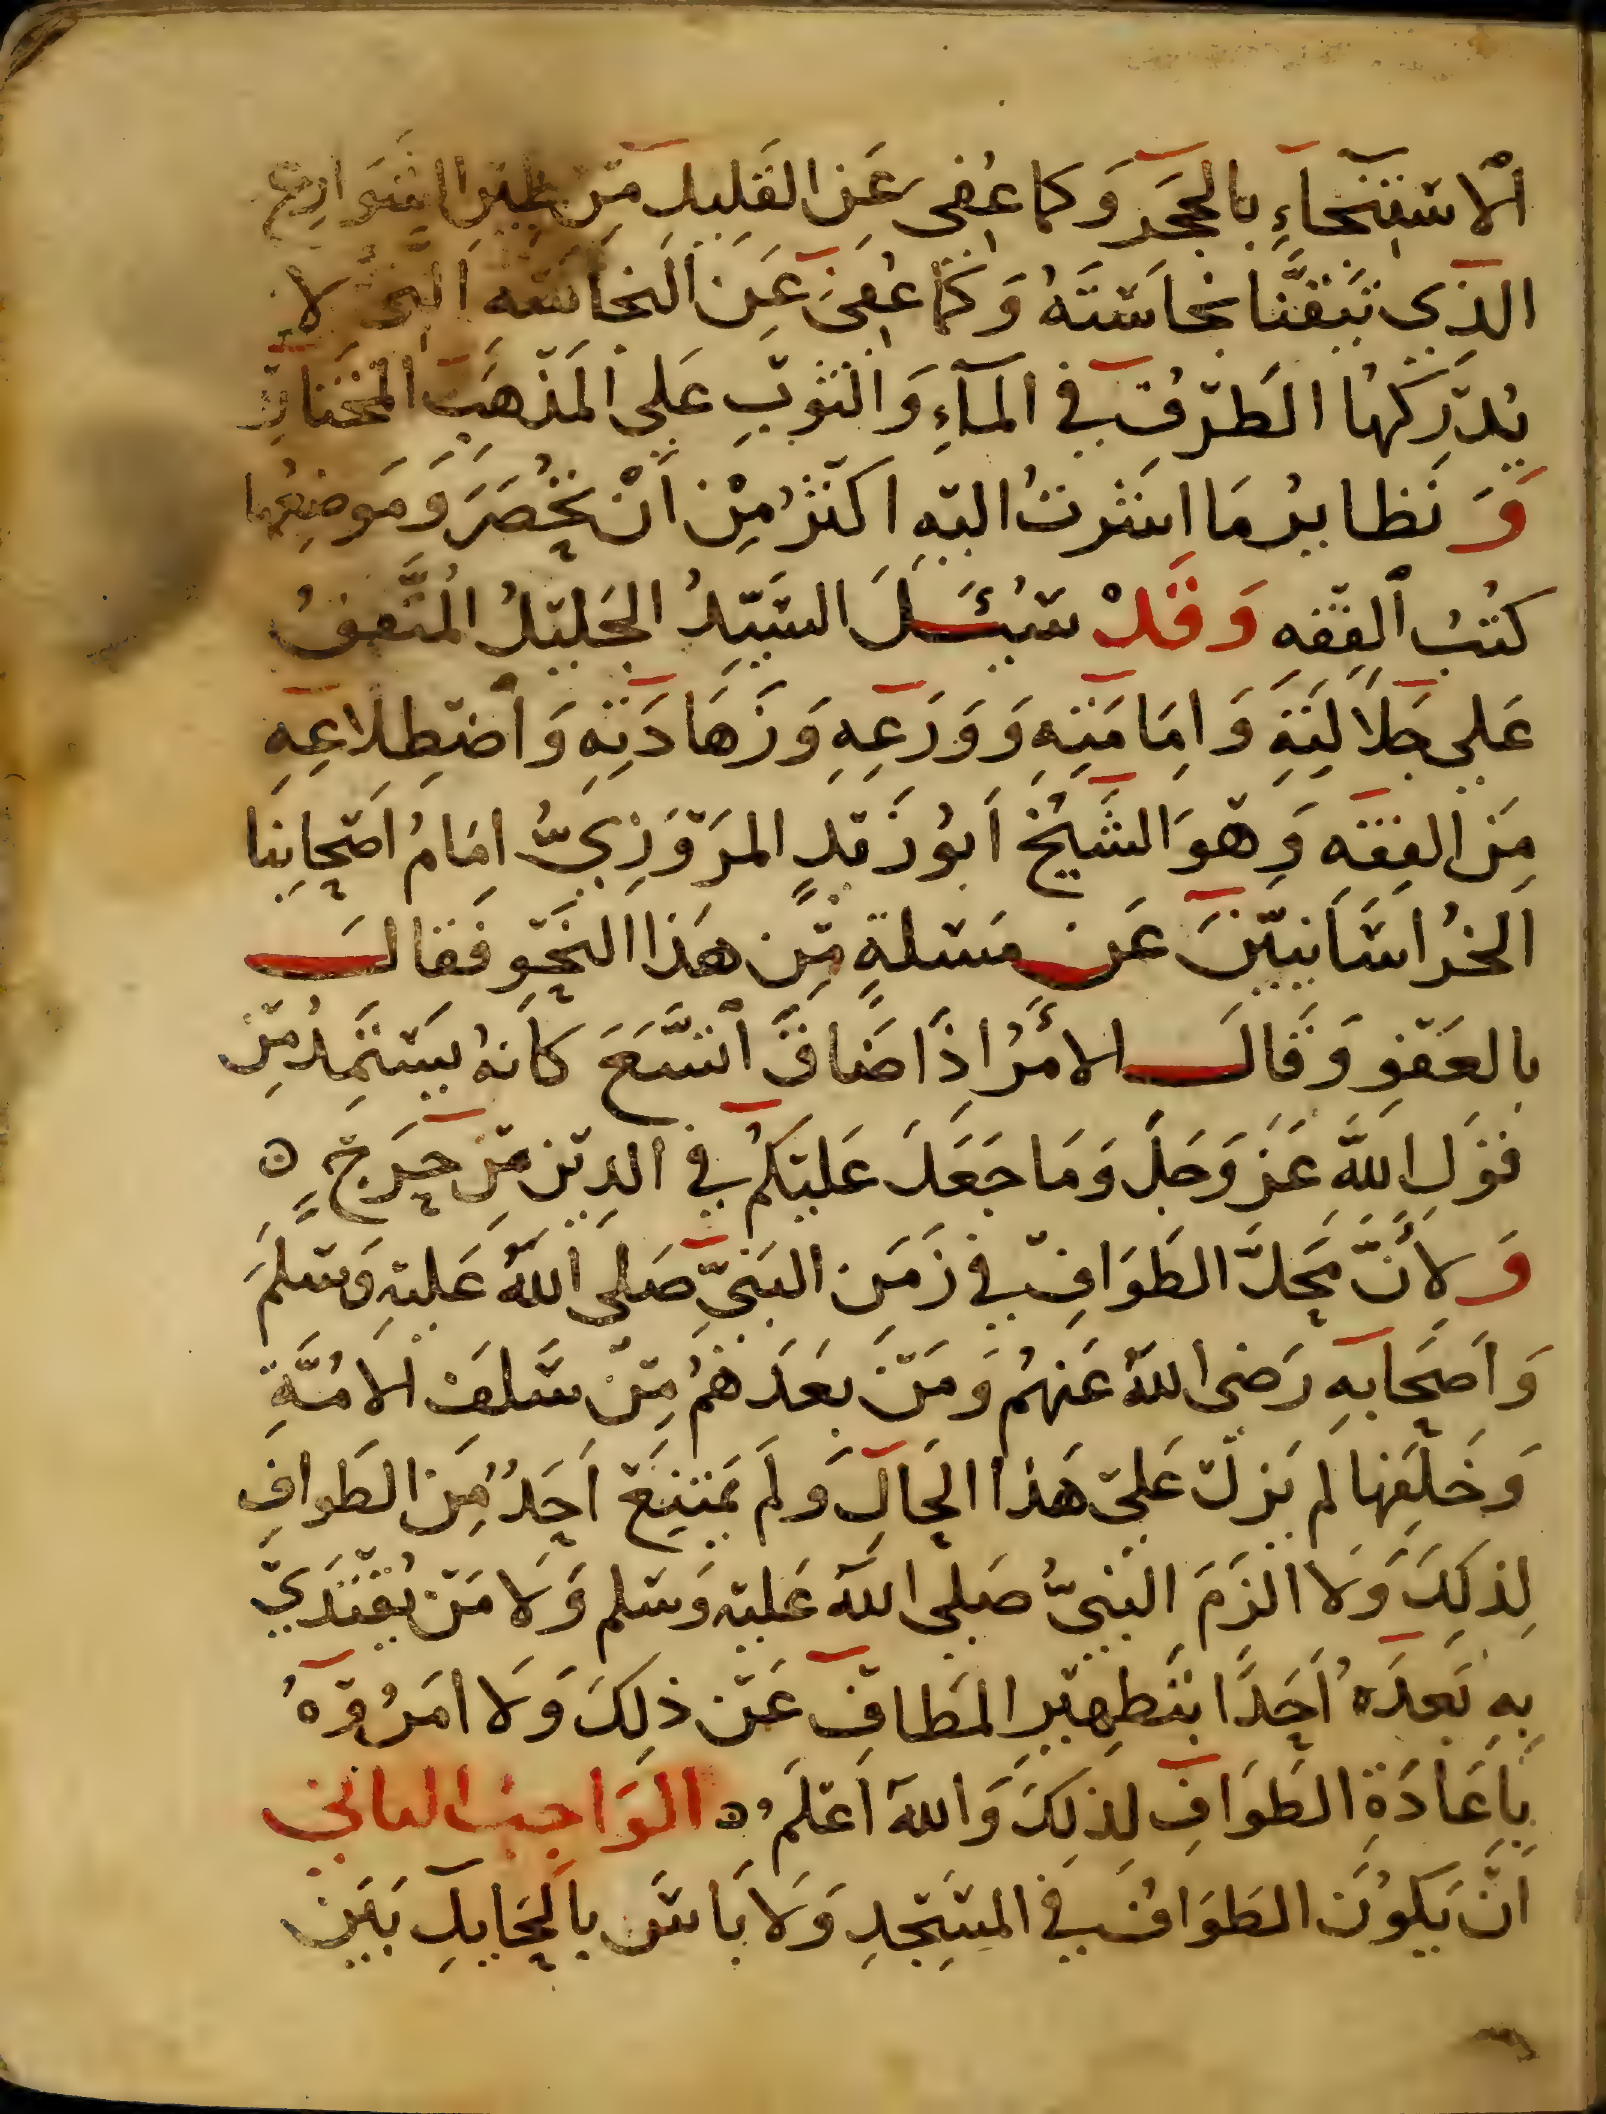 الاستنجاءِ بالحجر وكما عُفي عَن القليل مِن طين الشوارع
الذي تيقنّا نجاستَهُ وكما عُفِيَ عَن النجاسَة التى لا
يُدركها الطَرْفُ في المآءِ والثوبِ عَلى المَذْهَب المختار
وَنَظايرُ مَا اشرتُ اليهِ اكثرُ مِنْ انْ تُحْصَرَ وَمَوضِعُها
كتبُ الفِقه وَقَدْ سُئِلَ السَيّدُ الجَليلُ المتَّفقُ
عَلى جَلالتِهِ وَامِامَتِهِ وَوَرَعِهِ وَزَهَادَتِهِ وَاضْطِلاعِهِ
مِنَ الفِقه وَهوَ الشَيْخ ابُو زَيدٍ المرْوَزِيُّ امَامُ اصْحابِنا
الخُراسَانيّينَ عَن مسْلةٍ مِّن هَذا النَحْو فَقَالَ
بالعَفْوِ وَقَالَ الأمْرُ اذَا ضَاقَ اتّسَعَ كانهُ يَسْتَمِدُ مِن
قَوْلِ اللَّهِ عَزَّ وَجَلَّ وَمَا جَعَلَ عَليْكمُ في الدِيْن مِنْ حَرَجٍ ه
وَلأَنَّ مَحَلَّ الطَوَافِ في زَمَن النَبيِّ صَلى اللَّهُ عَليْهِ وَسَلمَ
وَاصْحَابهِ رَضى اللهُ عَنهُم وَمَنْ بَعْدَهُمْ مِنْ سَلَفِ الأمّةِ
وَخَلَفِها لم يَزلْ عَلىْ هَذا الحَالِ وَلَم يَمتَنِعْ احَدٌ مِنَ الطَوافِ
لِذلِكَ وَلا الزَمَ النَبيُّ صَلى اللَّه عَليْهِ وَسَلم وَلا مَنْ يُقْتَدَيْ
بِهِ بَعدَهُ احَدًا بتَطهِيْرِ المَطافِ عَنْ ذلِكَ وَلا امَرُوْهُ
بإعَادَةِ الطَوَافِ لِذلِكَ وَاللهُ اعْلَمُ ه الوَاجِبُ الثاني
انْ يَكُونَ الطَوَافُ في المسْجِدِ وَلا بَاسَ بالحَايلِ بَيْنَ